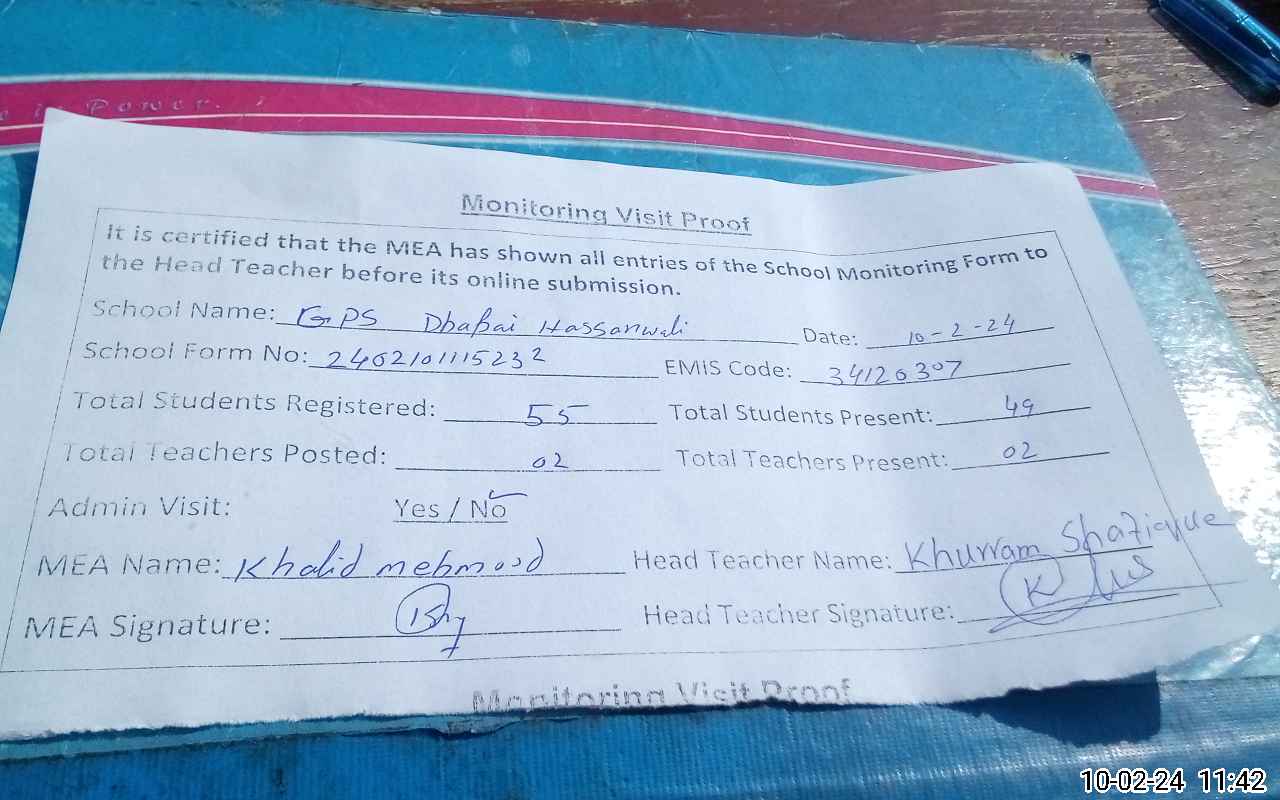 Power.
Monitoring Visit Proof
It is certified that the MEA has shown all entries of the School Monitoring Form to
the Head Teacher before its online submission.
School Name: GPS Dhapai Hassanwali Date: 10-2-24
School Form No: 2402101115232 EMIS Code: 34120307
Total Students Registered: 55 Total Students Present: 49
Total Teachers Posted: 02 Total Teachers Present: 02
Admin Visit: Yes / No
MEA Name: Khalid mehmood Head Teacher Name: Khurram Shafique
MEA Signature: Head Teacher Signature:
Monitoring Visit Proof
10-02-24 11:42